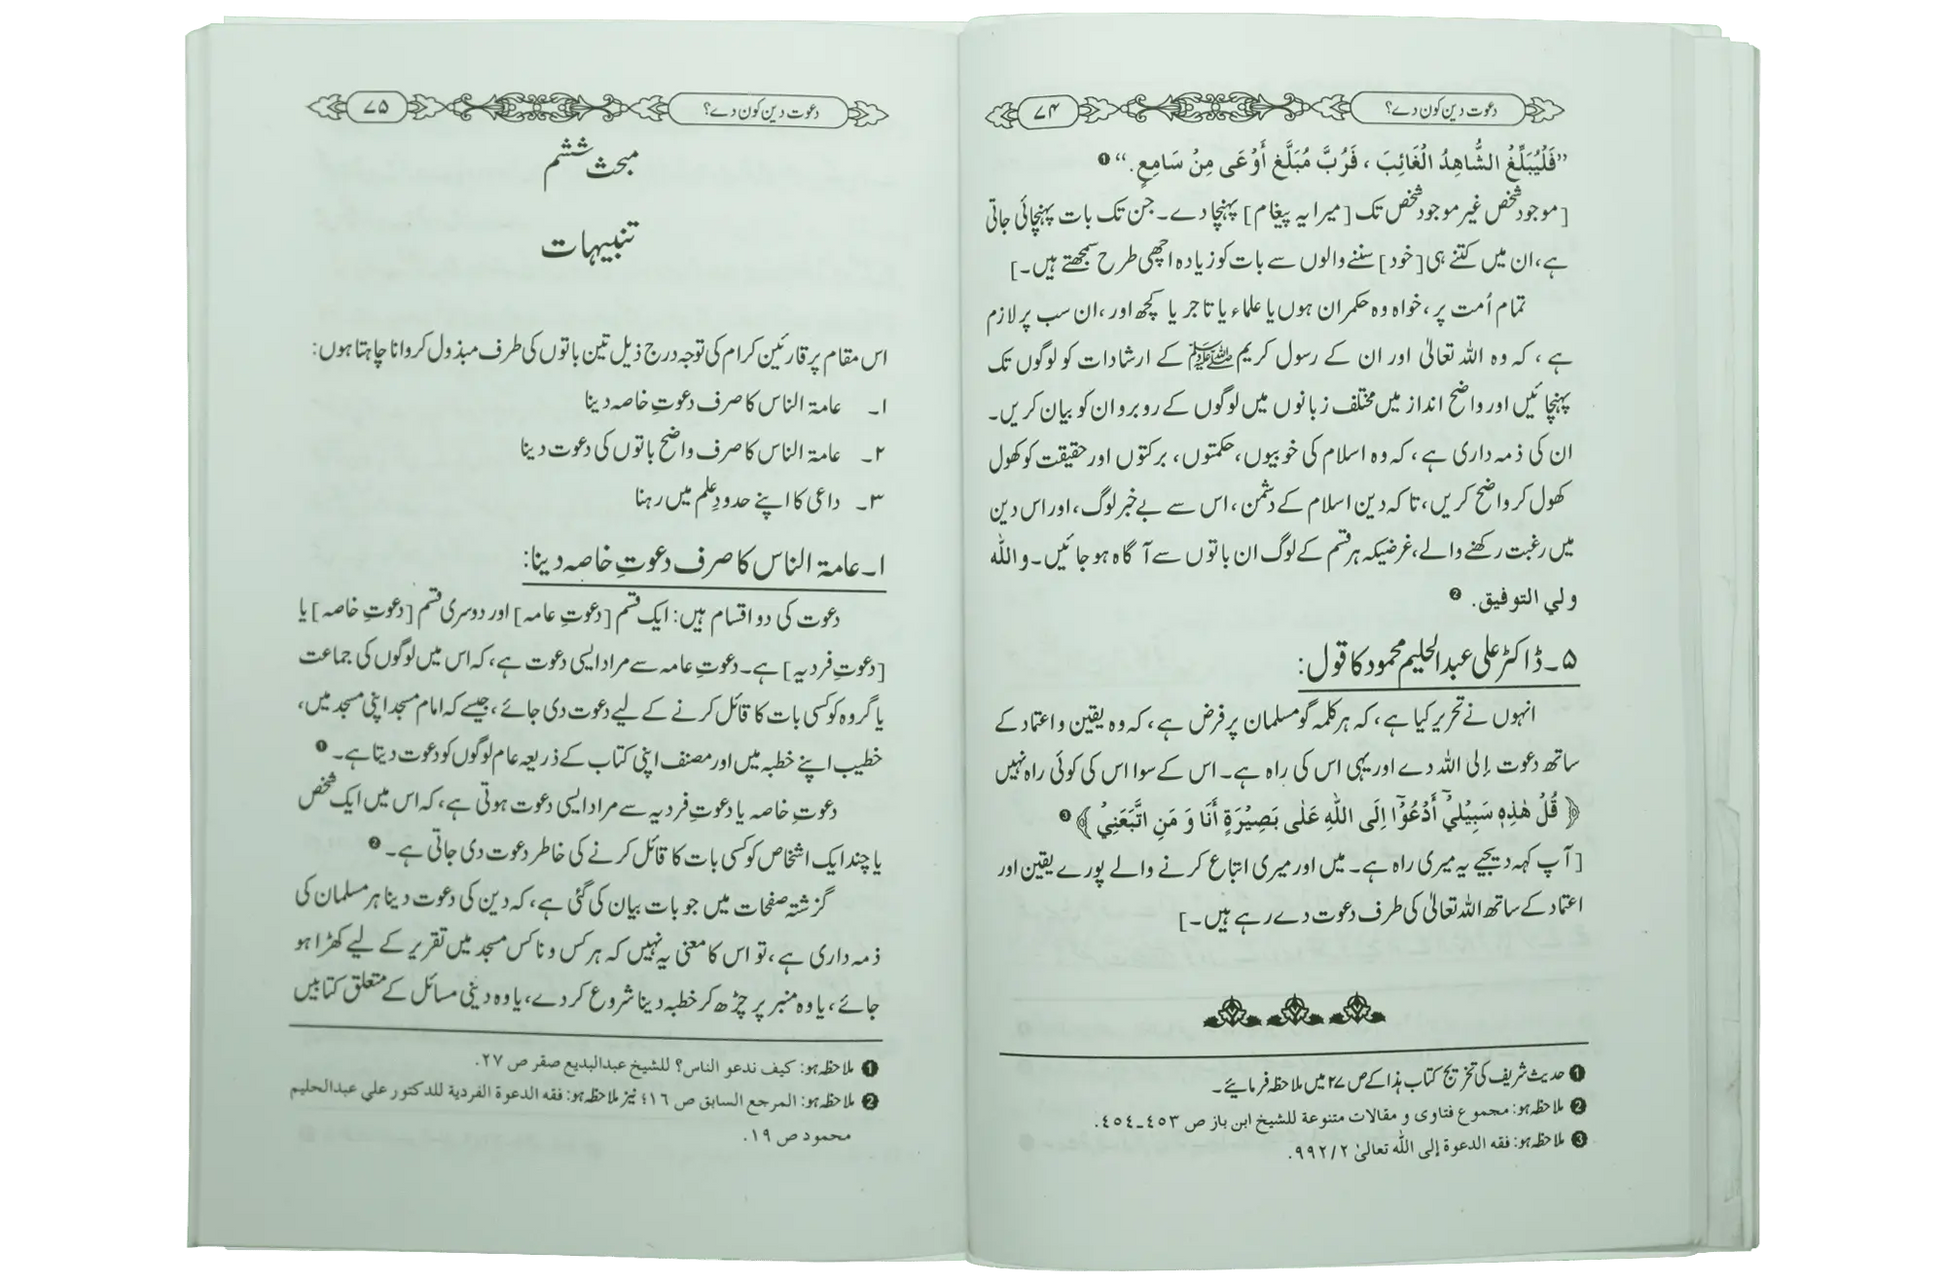 دعوت دین کون دے؟
۷۴
”فَلْيُبَلِّغْ الشَّاهِدُ الْغَائِبَ ، فَرُبَّ مُبَلَّغٍ أَوْعَى مِنْ سَامِعٍ.“ ❶
[موجود شخص غیر موجود شخص تک [میرا یہ پیغام] پہنچا دے۔ جن تک بات پہنچائی جاتی
ہے، ان میں کتنے ہی [خود] سننے والوں سے بات کو زیادہ اچھی طرح سمجھتے ہیں۔]
تمام اُمت پر، خواہ وہ حکمران ہوں یا علماء یا تاجر یا کچھ اور، ان سب پر لازم
ہے، کہ وہ اللہ تعالیٰ اور ان کے رسول کریم ﷺ کے ارشادات کو لوگوں تک
پہنچائیں اور واضح انداز میں مختلف زبانوں میں لوگوں کے روبرو ان کو بیان کریں۔
ان کی ذمہ داری ہے، کہ وہ اسلام کی خوبیوں، حکمتوں، برکتوں اور حقیقت کو کھول
کھول کر واضح کریں، تاکہ دین اسلام کے دشمن، اس سے بے خبر لوگ، اور اس دین
میں رغبت رکھنے والے، غرضیکہ ہر قسم کے لوگ ان باتوں سے آگاہ ہو جائیں۔ واللّٰہ
ولي التوفيق. ❷
۵۔ ڈاکٹر علی عبدالحلیم محمود کا قول:
انہوں نے تحریر کیا ہے، کہ ہر کلمہ گو مسلمان پر فرض ہے، کہ وہ یقین و اعتماد کے
ساتھ دعوت إلی اللہ دے اور یہی اس کی راہ ہے۔ اس کے سوا اس کی کوئی راہ نہیں
﴿قُلْ هٰذِهٖ سَبِيْلِيْٓ أَدْعُوْٓا اِلَى اللّٰهِ عَلٰى بَصِيْرَةٍ أَنَا وَ مَنِ اتَّبَعَنِيْ﴾ ❸
[آپ کہہ دیجیے یہ میری راہ ہے۔ میں اور میری اتباع کرنے والے پورے یقین اور
اعتماد کے ساتھ اللہ تعالیٰ کی طرف دعوت دے رہے ہیں۔]
❶ حدیث شریف کی تخریج کتاب ہذا کے ص ۲۷ میں ملاحظہ فرمائیے۔
❷ ملاحظہ ہو: مجموع فتاوى و مقالات متنوعة للشيخ ابن باز ص ٤٥٣-٤٥٤.
❸ ملاحظہ ہو: فقه الدعوة إلى الله تعالىٰ ٩٩٢/٢.
دعوت دین کون دے؟
۷۵
مبحث ششم
تنبیہات
اس مقام پر قارئین کرام کی توجہ درج ذیل تین باتوں کی طرف مبذول کروانا چاہتا ہوں:
۱۔ عامۃ الناس کا صرف دعوتِ خاصہ دینا
۲۔ عامۃ الناس کا صرف واضح باتوں کی دعوت دینا
۳۔ داعی کا اپنے حدودِ علم میں رہنا
۱۔ عامۃ الناس کا صرف دعوتِ خاصہ دینا:
دعوت کی دو اقسام ہیں: ایک قسم [دعوتِ عامہ] اور دوسری قسم [دعوتِ خاصہ] یا
[دعوتِ فردیہ] ہے۔ دعوتِ عامہ سے مراد ایسی دعوت ہے، کہ اس میں لوگوں کی جماعت
یا گروہ کو کسی بات کا قائل کرنے کے لیے دعوت دی جائے، جیسے کہ امام مسجد اپنی مسجد میں،
خطیب اپنے خطبہ میں اور مصنف اپنی کتاب کے ذریعہ عام لوگوں کو دعوت دیتا ہے۔ ❶
دعوتِ خاصہ یا دعوتِ فردیہ سے مراد ایسی دعوت ہوتی ہے، کہ اس میں ایک شخص
یا چند ایک اشخاص کو کسی بات کا قائل کرنے کی خاطر دعوت دی جاتی ہے۔ ❷
گزشتہ صفحات میں جو بات بیان کی گئی ہے، کہ دین کی دعوت دینا ہر مسلمان کی
ذمہ داری ہے، تو اس کا معنی یہ نہیں کہ ہر کس و ناکس مسجد میں تقریر کے لیے کھڑا ہو
جائے، یا وہ منبر پر چڑھ کر خطبہ دینا شروع کر دے، یا وہ دینی مسائل کے متعلق کتابیں
❶ ملاحظہ ہو: كيف ندعو الناس؟ للشيخ عبدالبديع صقر ص ٢٧.
❷ ملاحظہ ہو: المرجع السابق ص ١٦؛ نیز ملاحظہ ہو: فقه الدعوة الفردية للدكتور علي عبدالحليم
محمود ص ١٩.